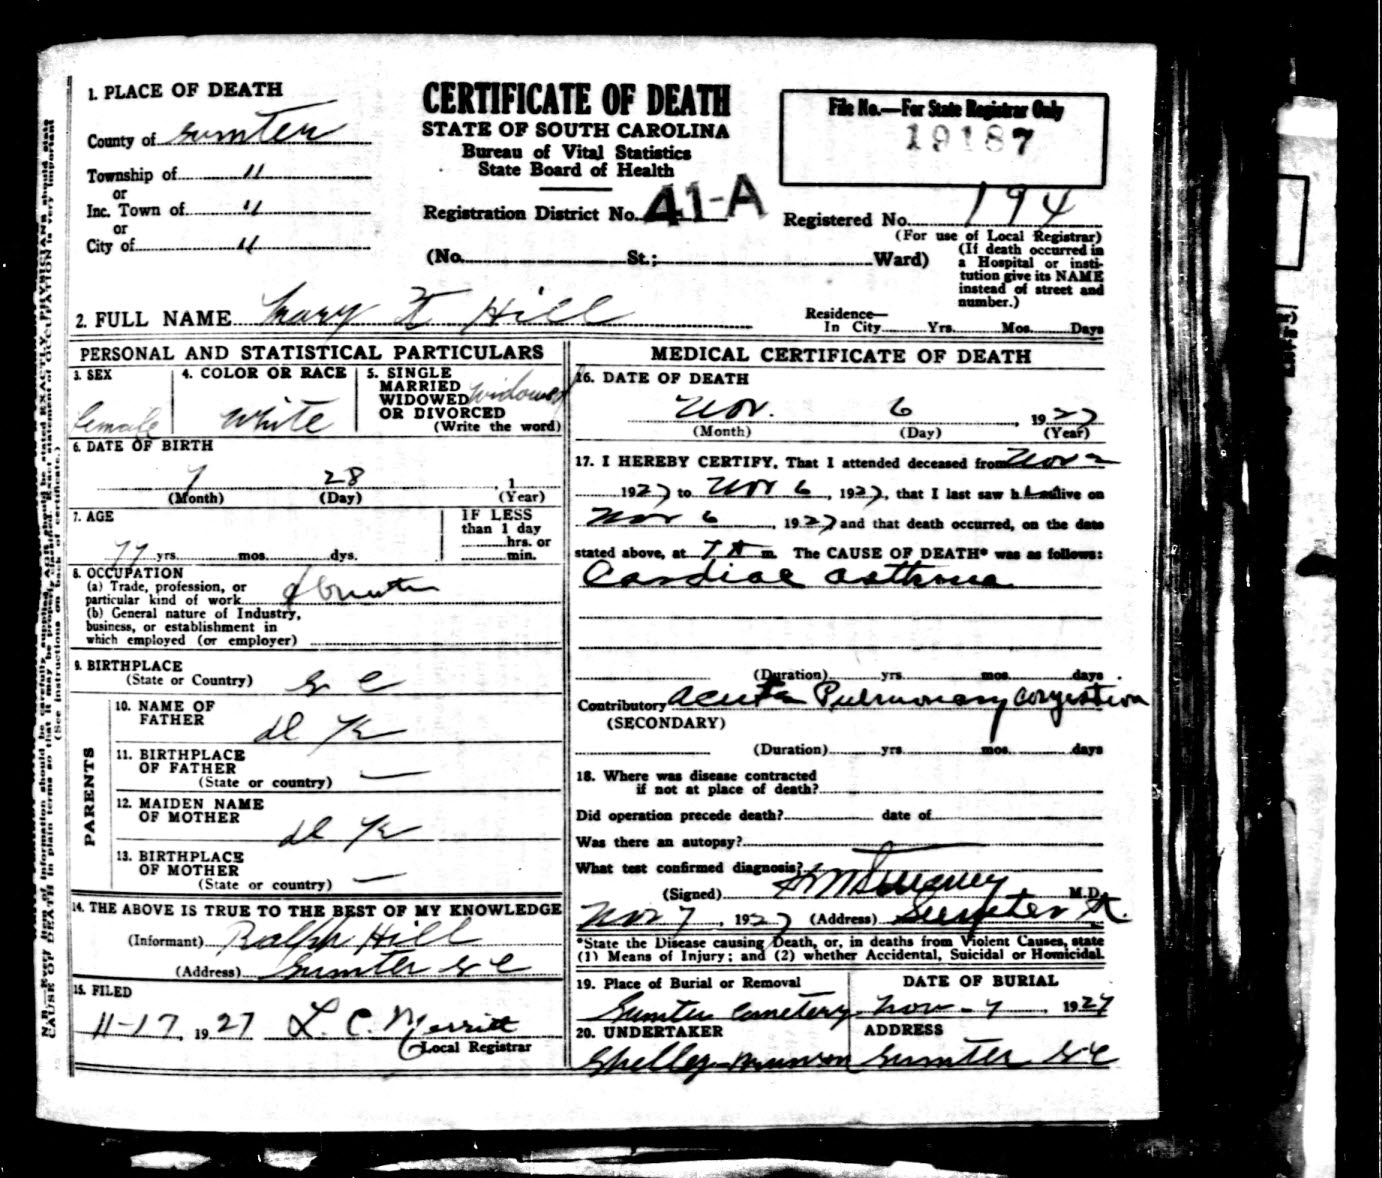 CERTIFICATE OF DEATH
STATE OF SOUTH CAROLINA
Bureau of Vital Statistics
State Board of Health
File No.—For State Registrar Only
19187
1. PLACE OF DEATH
County of Sumter
Township of "
or
Inc. Town of "
or
City of "
Registration District No. 41-A
Registered No. 194
(For use of Local Registrar)
(No. St.; Ward)
(If death occurred in
a Hospital or insti-
tution give its NAME
instead of street and
number.)
2. FULL NAME Mary Hill
Residence—
In City Yrs. Mos. Days
PERSONAL AND STATISTICAL PARTICULARS
3. SEX
female
4. COLOR OR RACE
White
5. SINGLE
MARRIED
WIDOWED
OR DIVORCED
(Write the word)
Widowed
6. DATE OF BIRTH
7 28 , 1
(Month) (Day) (Year)
7. AGE
77 yrs. mos. dys.
IF LESS
than 1 day
hrs. or
min.
8. OCCUPATION
(a) Trade, profession, or
particular kind of work
(b) General nature of Industry,
business, or establishment in
which employed (or employer)
9. BIRTHPLACE
(State or Country) S C
PARENTS
10. NAME OF
FATHER
D K
11. BIRTHPLACE
OF FATHER
(State or country) —
12. MAIDEN NAME
OF MOTHER
D K
13. BIRTHPLACE
OF MOTHER
(State or country) —
14. THE ABOVE IS TRUE TO THE BEST OF MY KNOWLEDGE
(Informant) Ralph Hill
(Address) Sumter S C
15. FILED
11-17, 1927 L. C. Merritt
Local Registrar
MEDICAL CERTIFICATE OF DEATH
16. DATE OF DEATH
Nov. 6 , 1927
(Month) (Day) (Year)
17. I HEREBY CERTIFY, That I attended deceased from Nov 2
1927 to Nov 6, 1927, that I last saw h alive on
Nov 6, 1927 and that death occurred, on the date
stated above, at 7 A m. The CAUSE OF DEATH* was as follows:
Cardiac asthma
(Duration) yrs mos. days
Contributory Acute Pulmonary Congestion
(SECONDARY)
(Duration) yrs mos. days
18. Where was disease contracted
if not at place of death?
Did operation precede death? date of
Was there an autopsy?
What test confirmed diagnosis?
(Signed) M.D.
Nov 7, 1927 (Address) Sumter
*State the Disease causing Death, or, in deaths from Violent Causes, state
(1) Means of Injury; and (2) whether Accidental, Suicidal or Homicidal.
19. Place of Burial or Removal
Sumter Cemetery
DATE OF BURIAL
Nov - 7 1927
20. UNDERTAKER
Shelley-Munson
ADDRESS
Sumter S C